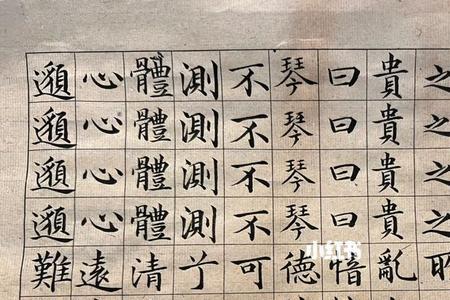 之之之之所
貴貴貴貴亂
曰曰曰曰愔
琴琴琴琴德
不不不不可
測測測測兮
體體體體清
心心心心遠
邈邈邈邈難
小红书